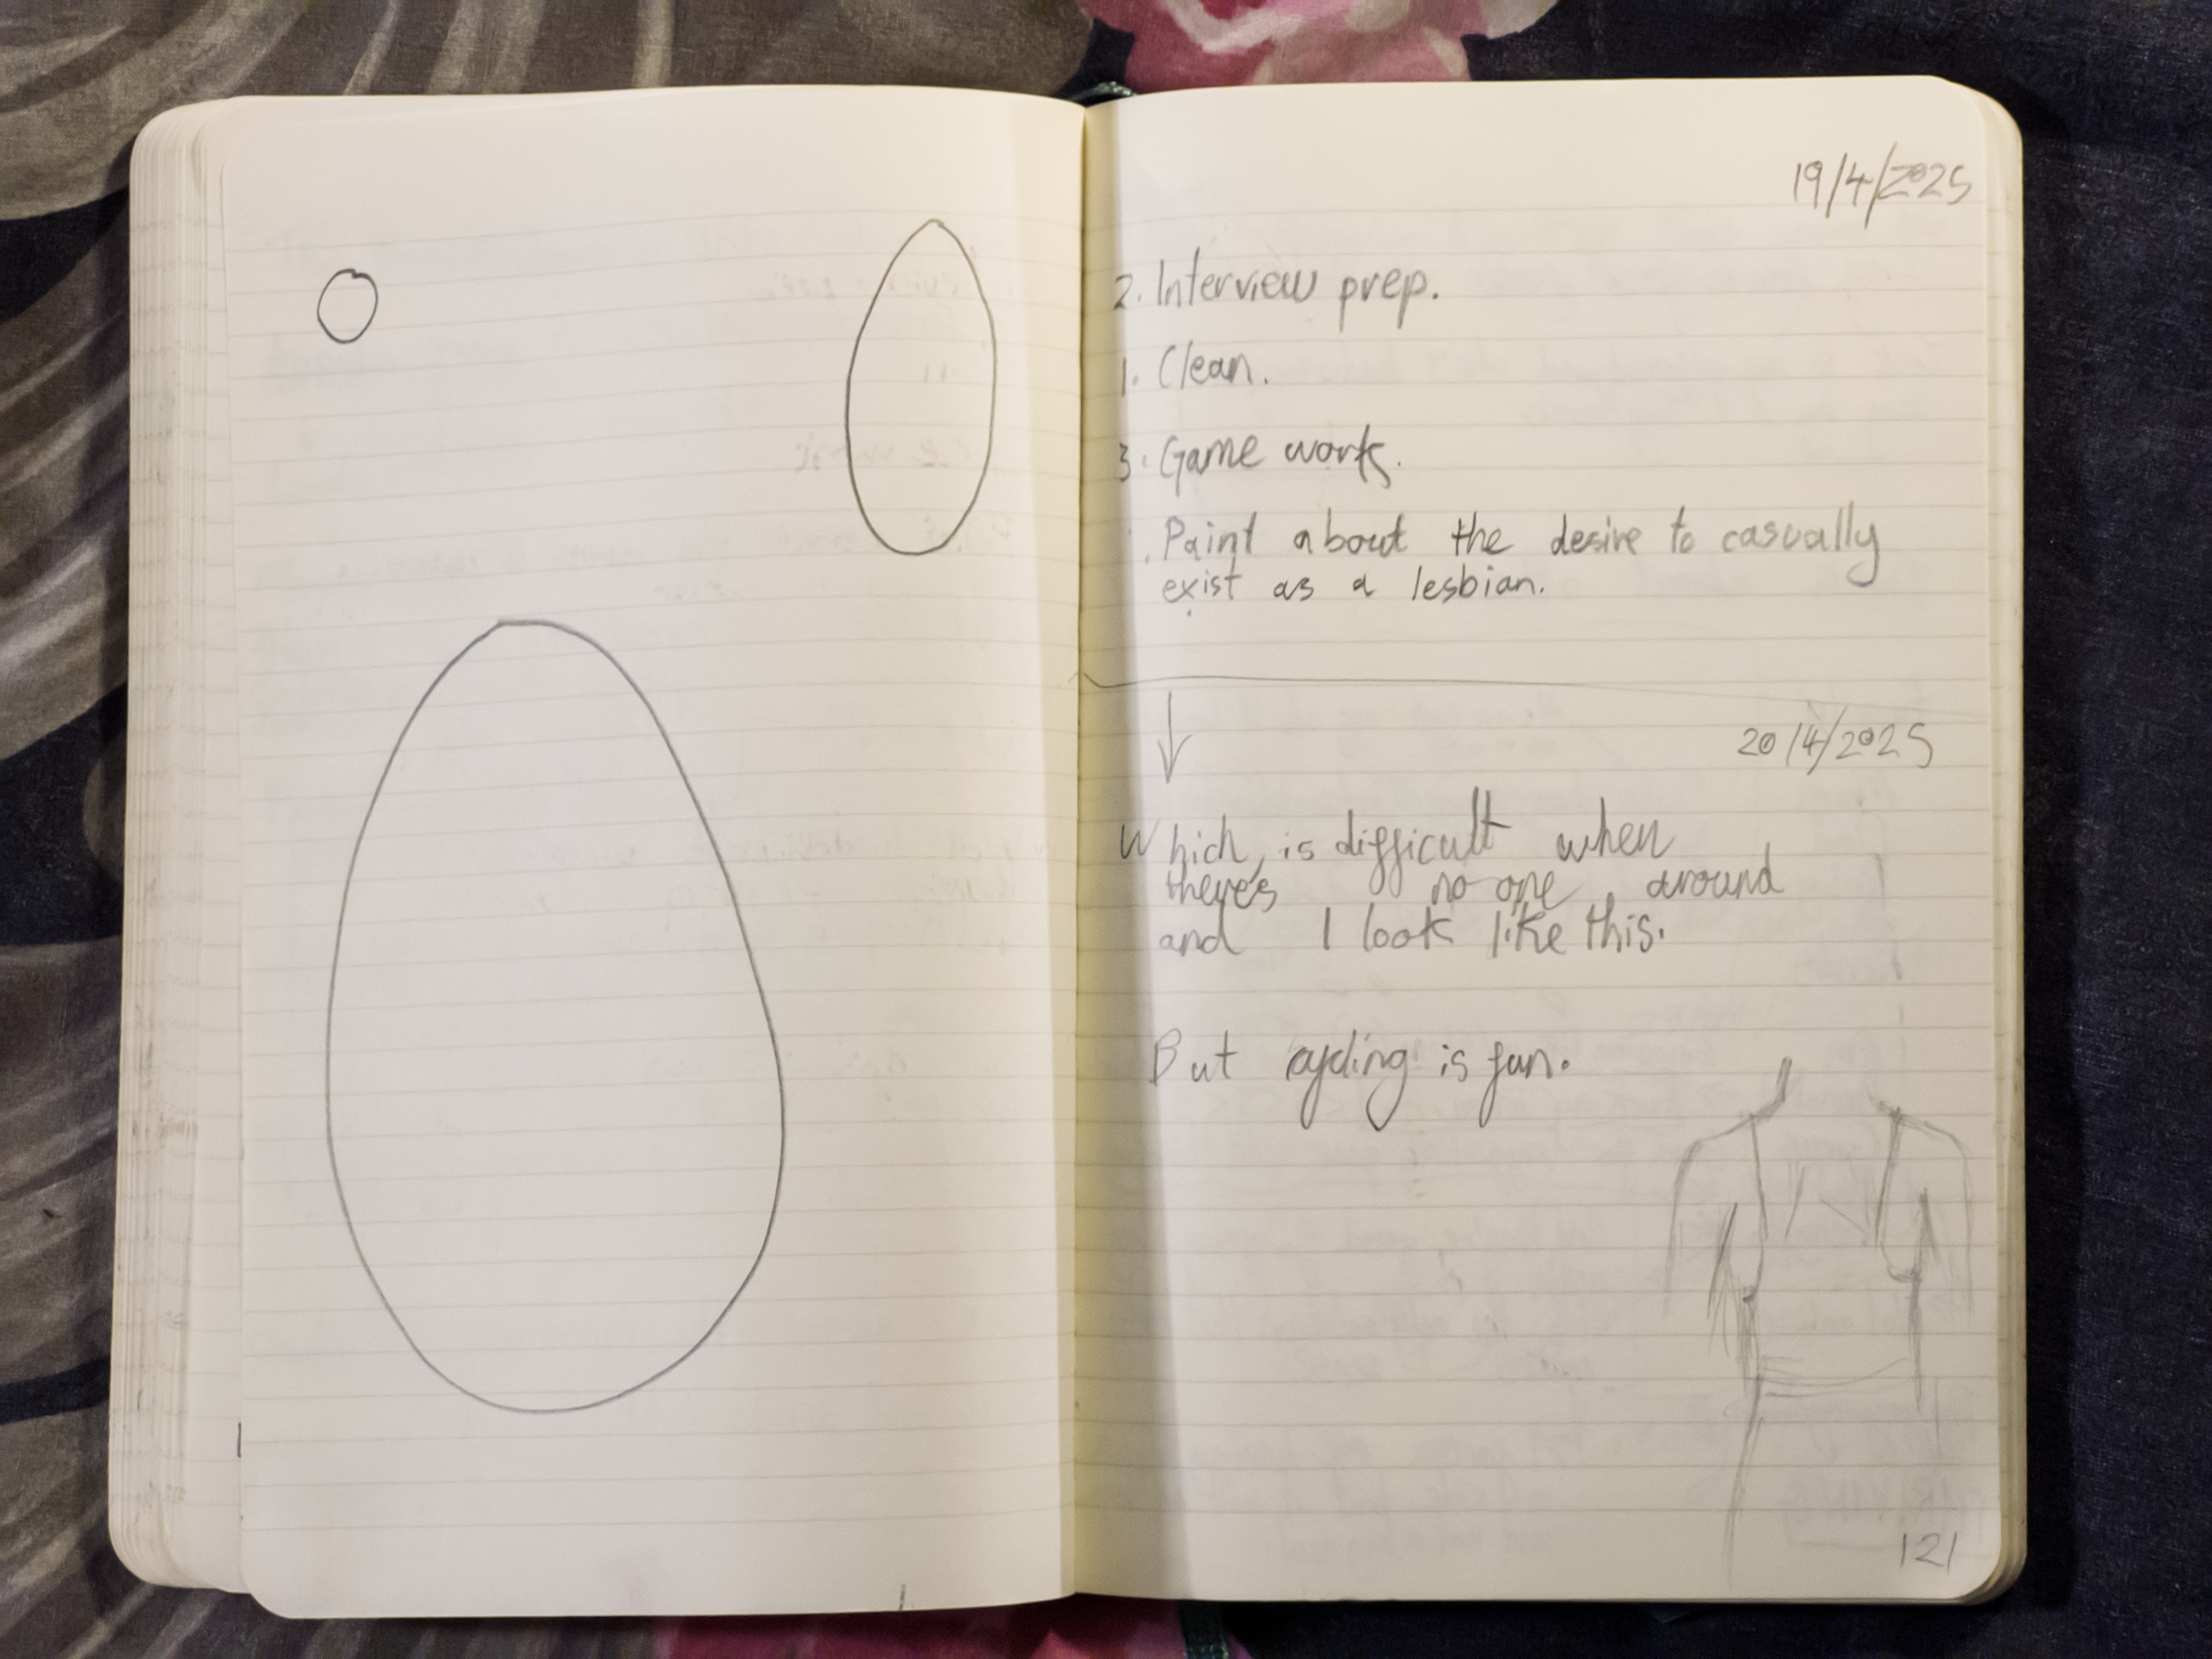 19/4/2025
2. Interview prep.
1. Clean.
3. Game work.
. Paint about the desire to casually
exist as a lesbian.
20/4/2025
Which, is difficult when
there's no one around
and I look like this.
But cycling is fun.
121